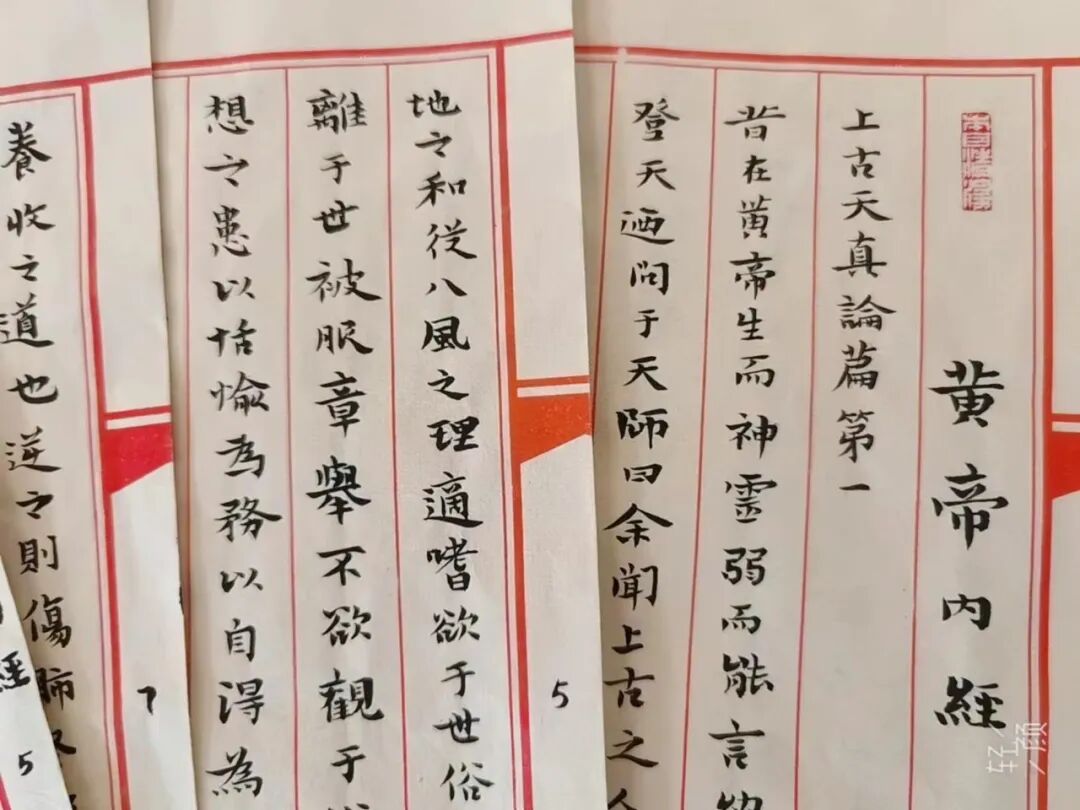 黄帝内經
上古天真論篇第一
昔在黄帝生而神靈弱而能言
登天迺問于天師曰余聞上古之人
5
地之和從八風之理適嗜欲于世俗
離于世被服章舉不欲觀于
想之患以恬愉為務以自得為
7
養收之道也逆之則傷肺
經
5
轻颜